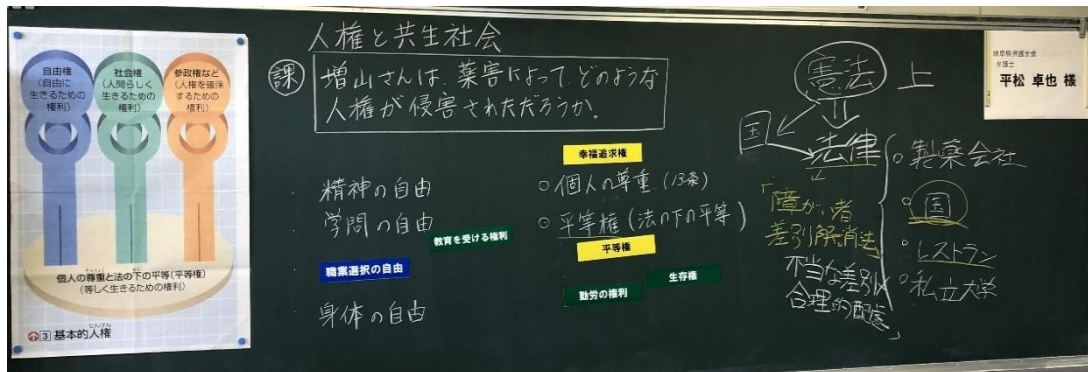 自由権
(自由に
生きるための
権利)
社会権
(人間らしく
生きるための
権利)
参政権など
(人権を確保
するための
権利)
個人の尊重と法の下の平等(平等権)
(等しく生きるための権利)
3 基本的人権
人権と共生社会
課
増山さんは、薬害によって、どのような
人権が侵害されただろうか。
・精神の自由
・学問の自由
教育を受ける権利
職業選択の自由
・身体の自由
幸福追求権
○個人の尊重(13条)
○平等権(法の下の平等)
平等権
生存権
勤労の権利
憲法 上
国
法律
「障がい者
差別解消法」
不当な差別×
合理的配慮
○製薬会社
○国
○レストラン
○私立大学
岐阜県弁護士会
弁護士
平松 卓也 様